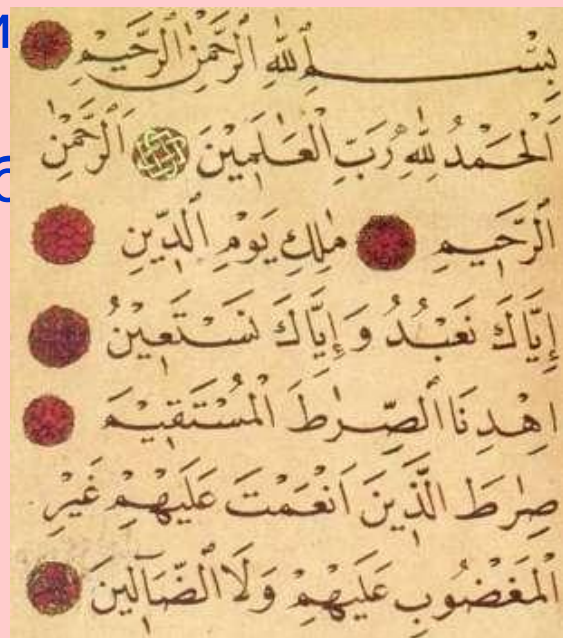 بِسْمِ اللّٰهِ الرَّحْمٰنِ الرَّحِيْمِ
اَلْحَمْدُ لِلّٰهِ رَبِّ الْعَالَمِيْنَ اَلرَّحْمٰنِ
الرَّحِيْمِ مٰلِكِ يَوْمِ الدِّيْنِ
اِيَّاكَ نَعْبُدُ وَ اِيَّاكَ نَسْتَعِيْنُ
اِهْدِنَا الصِّرَاطَ الْمُسْتَقِيْمَ
صِرَاطَ الَّذِيْنَ اَنْعَمْتَ عَلَيْهِمْ غَيْرِ
الْمَغْضُوْبِ عَلَيْهِمْ وَلَا الضَّآلِّيْنَ